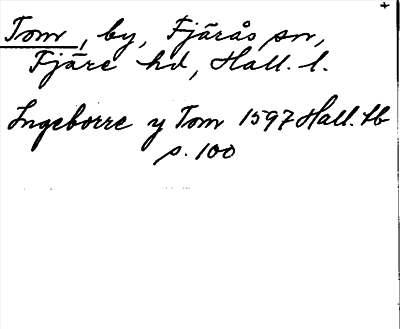 Tom, by, Fjärås sn,
Fjäre hd, Hall. l.
Ingeborre y Tom 1597 Hall. tb
s. 100